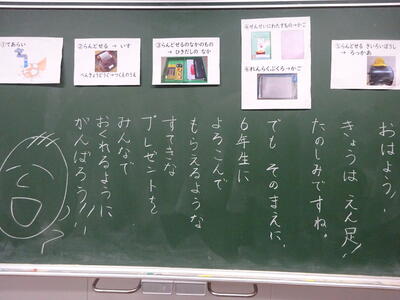 ①てあらい
②らんどせる → いす
べんきょうどうぐ→つくえのうえ
③らんどせるのなかのもの
→ ひきだしの なか
④せんせいにわたすもの→かご
④れんらくぶくろ→かご
⑤らんどせる きいろいぼうし
→ ろっかあ
おはよう!!
きょうは えん足!!
たのしみですね。
でも そのまえに、
6年生に
よろこんで
もらえるような
すてきな
プレゼントを
みんなで
おくれるように
がんばろう!!